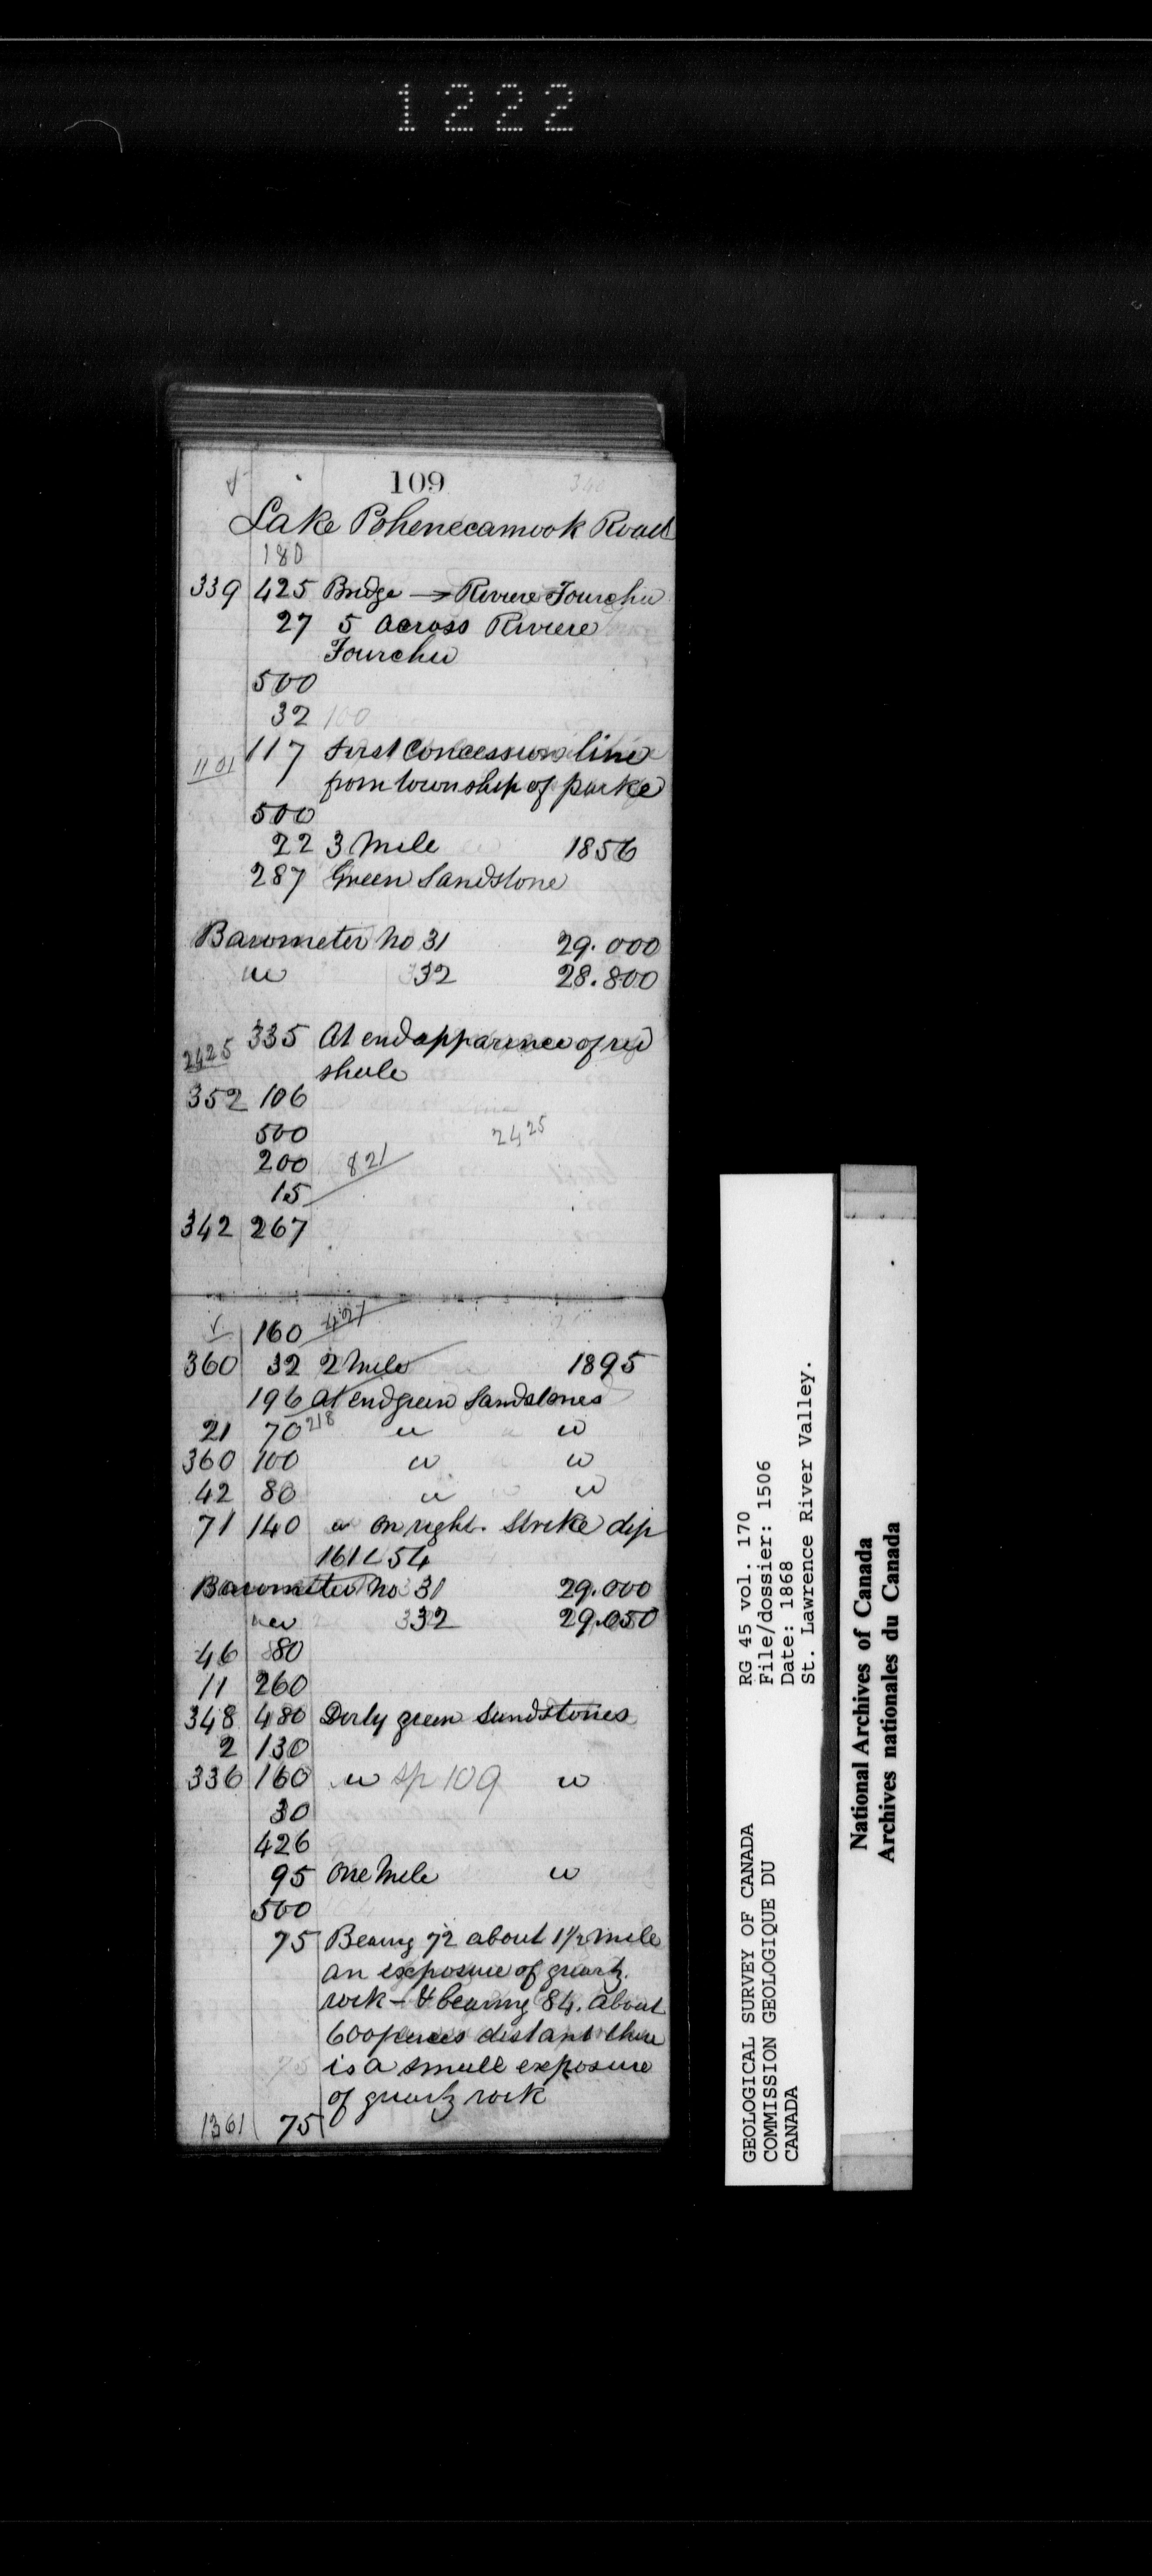 1222
109
340
Lake Pohenecamook Road
180
339 425 Bridge → Riviere Fourchu
27 5 across Riviere
Fourchu
500
32 100
117 first Concession line
1101 from township of parke
500
22 3 Mile 1856
287 Green Sandstone
Barometer no 31 29.000
" 332 28.800
335 At end apparence of red
2425 shale
352 106
500 2425
200 821
15
342 267
160 427
360 32 2 Mile 1895
196 at end green Sandstones
21 70 218 " "
360 100 " "
42 80 " "
71 140 " on right. Strike dip
161 < 54
Barometer no 31 29.000
" 332 29.050
46 80
11 260
348 480 Dirly green Sandstones
2 130
336 160 " sp 109 "
30
426
95 One Mile "
500
75 Bearing 72 about 1½ mile
an exposure of quartz
rock – & bearing 84. about
600 paces distant there
is a small exposure
of quartz rock
1361 75
GEOLOGICAL SURVEY OF CANADA RG 45 vol. 170
COMMISSION GEOLOGIQUE DU File/dossier: 1506
CANADA Date: 1868
St. Lawrence River Valley.
National Archives of Canada
Archives nationales du Canada